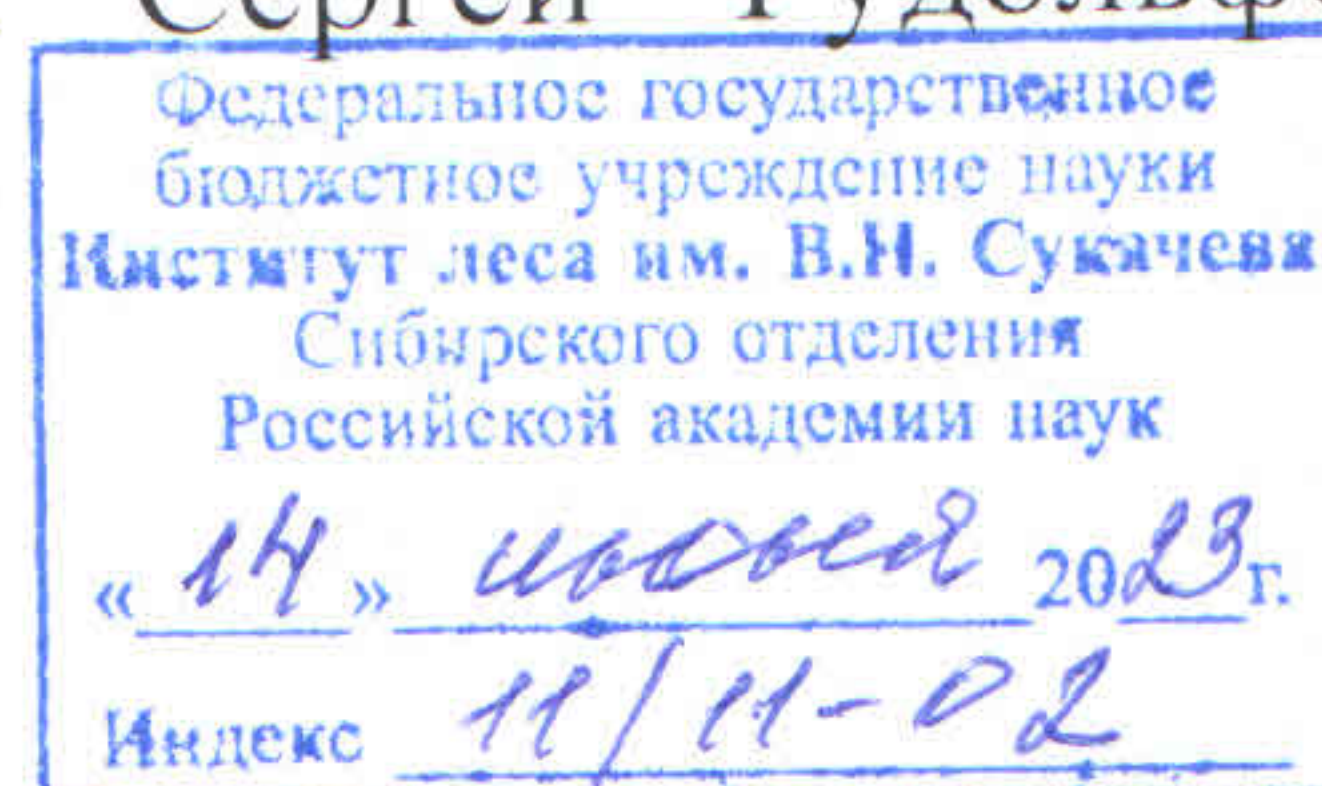 Сергей Рудольфо
Федеральное государственное
бюджетное учреждение науки
Институт леса им. В.Н. Сукачева
Сибирского отделения
Российской академии наук
« 14 » ноября 2023 г.
Индекс 11/11-02